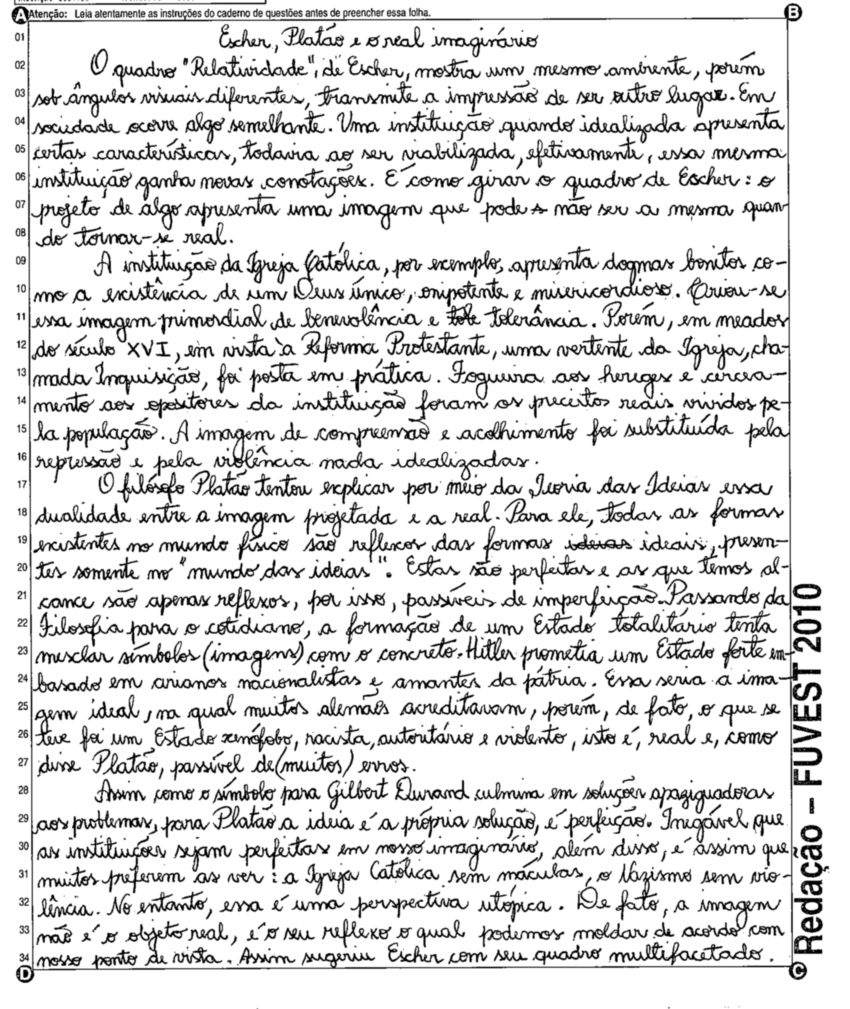 A Atenção: Leia atentamente as instruções do caderno de questões antes de preencher essa folha. B
01 Escher, Platão e o real imaginário
02 O quadro "Relatividade", de Escher, mostra um mesmo ambiente, porém
03 sob ângulos visuais diferentes, transmite a impressão de ser outro lugar. Em
04 sociedade ocorre algo semelhante. Uma instituição quando idealizada apresenta
05 certas características, todavia ao ser viabilizada, efetivamente, essa mesma
06 instituição ganha novas conotações. É como girar o quadro de Escher: o
07 projeto de algo apresenta uma imagem que pode não ser a mesma quan-
08 do tornar-se real.
09 A instituição da Igreja Católica, por exemplo, apresenta dogmas bonitos co-
10 mo a existência de um Deus único, onipotente e misericordioso. Criou-se
11 essa imagem primordial de benevolência e tole tolerância. Porém, em meados
12 do século XVI, em vista à Reforma Protestante, uma vertente da Igreja, cha-
13 mada Inquisição, foi posta em prática. Fogueira aos hereges e cercea-
14 mento aos opositores da instituição foram os preceitos reais vividos pe-
15 la população. A imagem de compreensão e acolhimento foi substituída pela
16 repressão e pela violência nada idealizadas.
17 O filósofo Platão tentou explicar por meio da Teoria das Ideias essa
18 dualidade entre a imagem projetada e a real. Para ele, todas as formas
19 existentes no mundo físico são reflexos das formas ideias ideais, presen-
20 tes somente no "mundo das ideias". Estas são perfeitas e as que temos al-
21 cance são apenas reflexos, por isso, passíveis de imperfeição. Passando da
22 Filosofia para o cotidiano, a formação de um Estado totalitário tenta
23 mesclar símbolos (imagens) com o concreto. Hitler prometia um Estado forte em-
24 basado em arianos nacionalistas e amantes da pátria. Essa seria a ima-
25 gem ideal, na qual muitos alemães acreditavam, porém, de fato, o que se
26 teve foi um Estado xenófobo, racista, autoritário e violento, isto é, real e, como
27 disse Platão, passível de (muitos) erros.
28 Assim como o símbolo para Gilbert Durand culmina em soluções apaziguadoras
29 aos problemas, para Platão a ideia é a própria solução, é perfeição. Inegável que
30 as instituições sejam perfeitas em nosso imaginário, além disso, é assim que
31 muitos preferem as ver: a Igreja Católica sem máculas, o Nazismo sem vio-
32 lência. No entanto, essa é uma perspectiva utópica. De fato, a imagem
33 não é o objeto real, é o seu reflexo o qual podemos moldar de acordo com
34 nosso ponto de vista. Assim sugeriu Escher com seu quadro multifacetado.
D C
Redação – FUVEST 2010